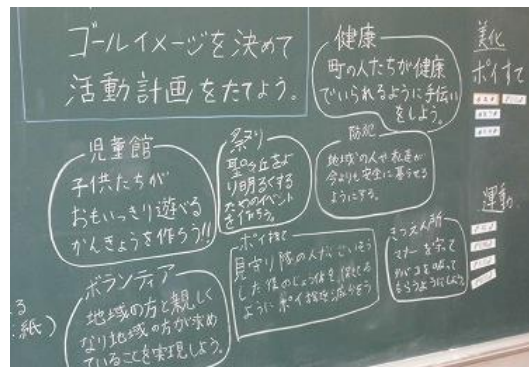 ゴールイメージを決めて
活動計画をたてよう。
健康
町の人たちが健康
でいられるように手伝い
をしよう。
美化
ポイすて
児童館
子供たちが
おもいっきり遊べる
かんきょうを作ろう!!
祭り
聖ヶ丘をよ
り明るくする
ためのイベント
を作ろう。
防犯
地域の人や私達が
今よりも安全に暮らせる
ようにする。
運動
ボランティア
地域の方と親しく
なり地域の方が求め
ていることを実現しよう。
ポイ捨て
見守り隊の人が
した後の
ようにポイ捨てを減らそう
きつえん所
マナーを守って
タバコを吸って
もらうようにしよう。
る
紙)